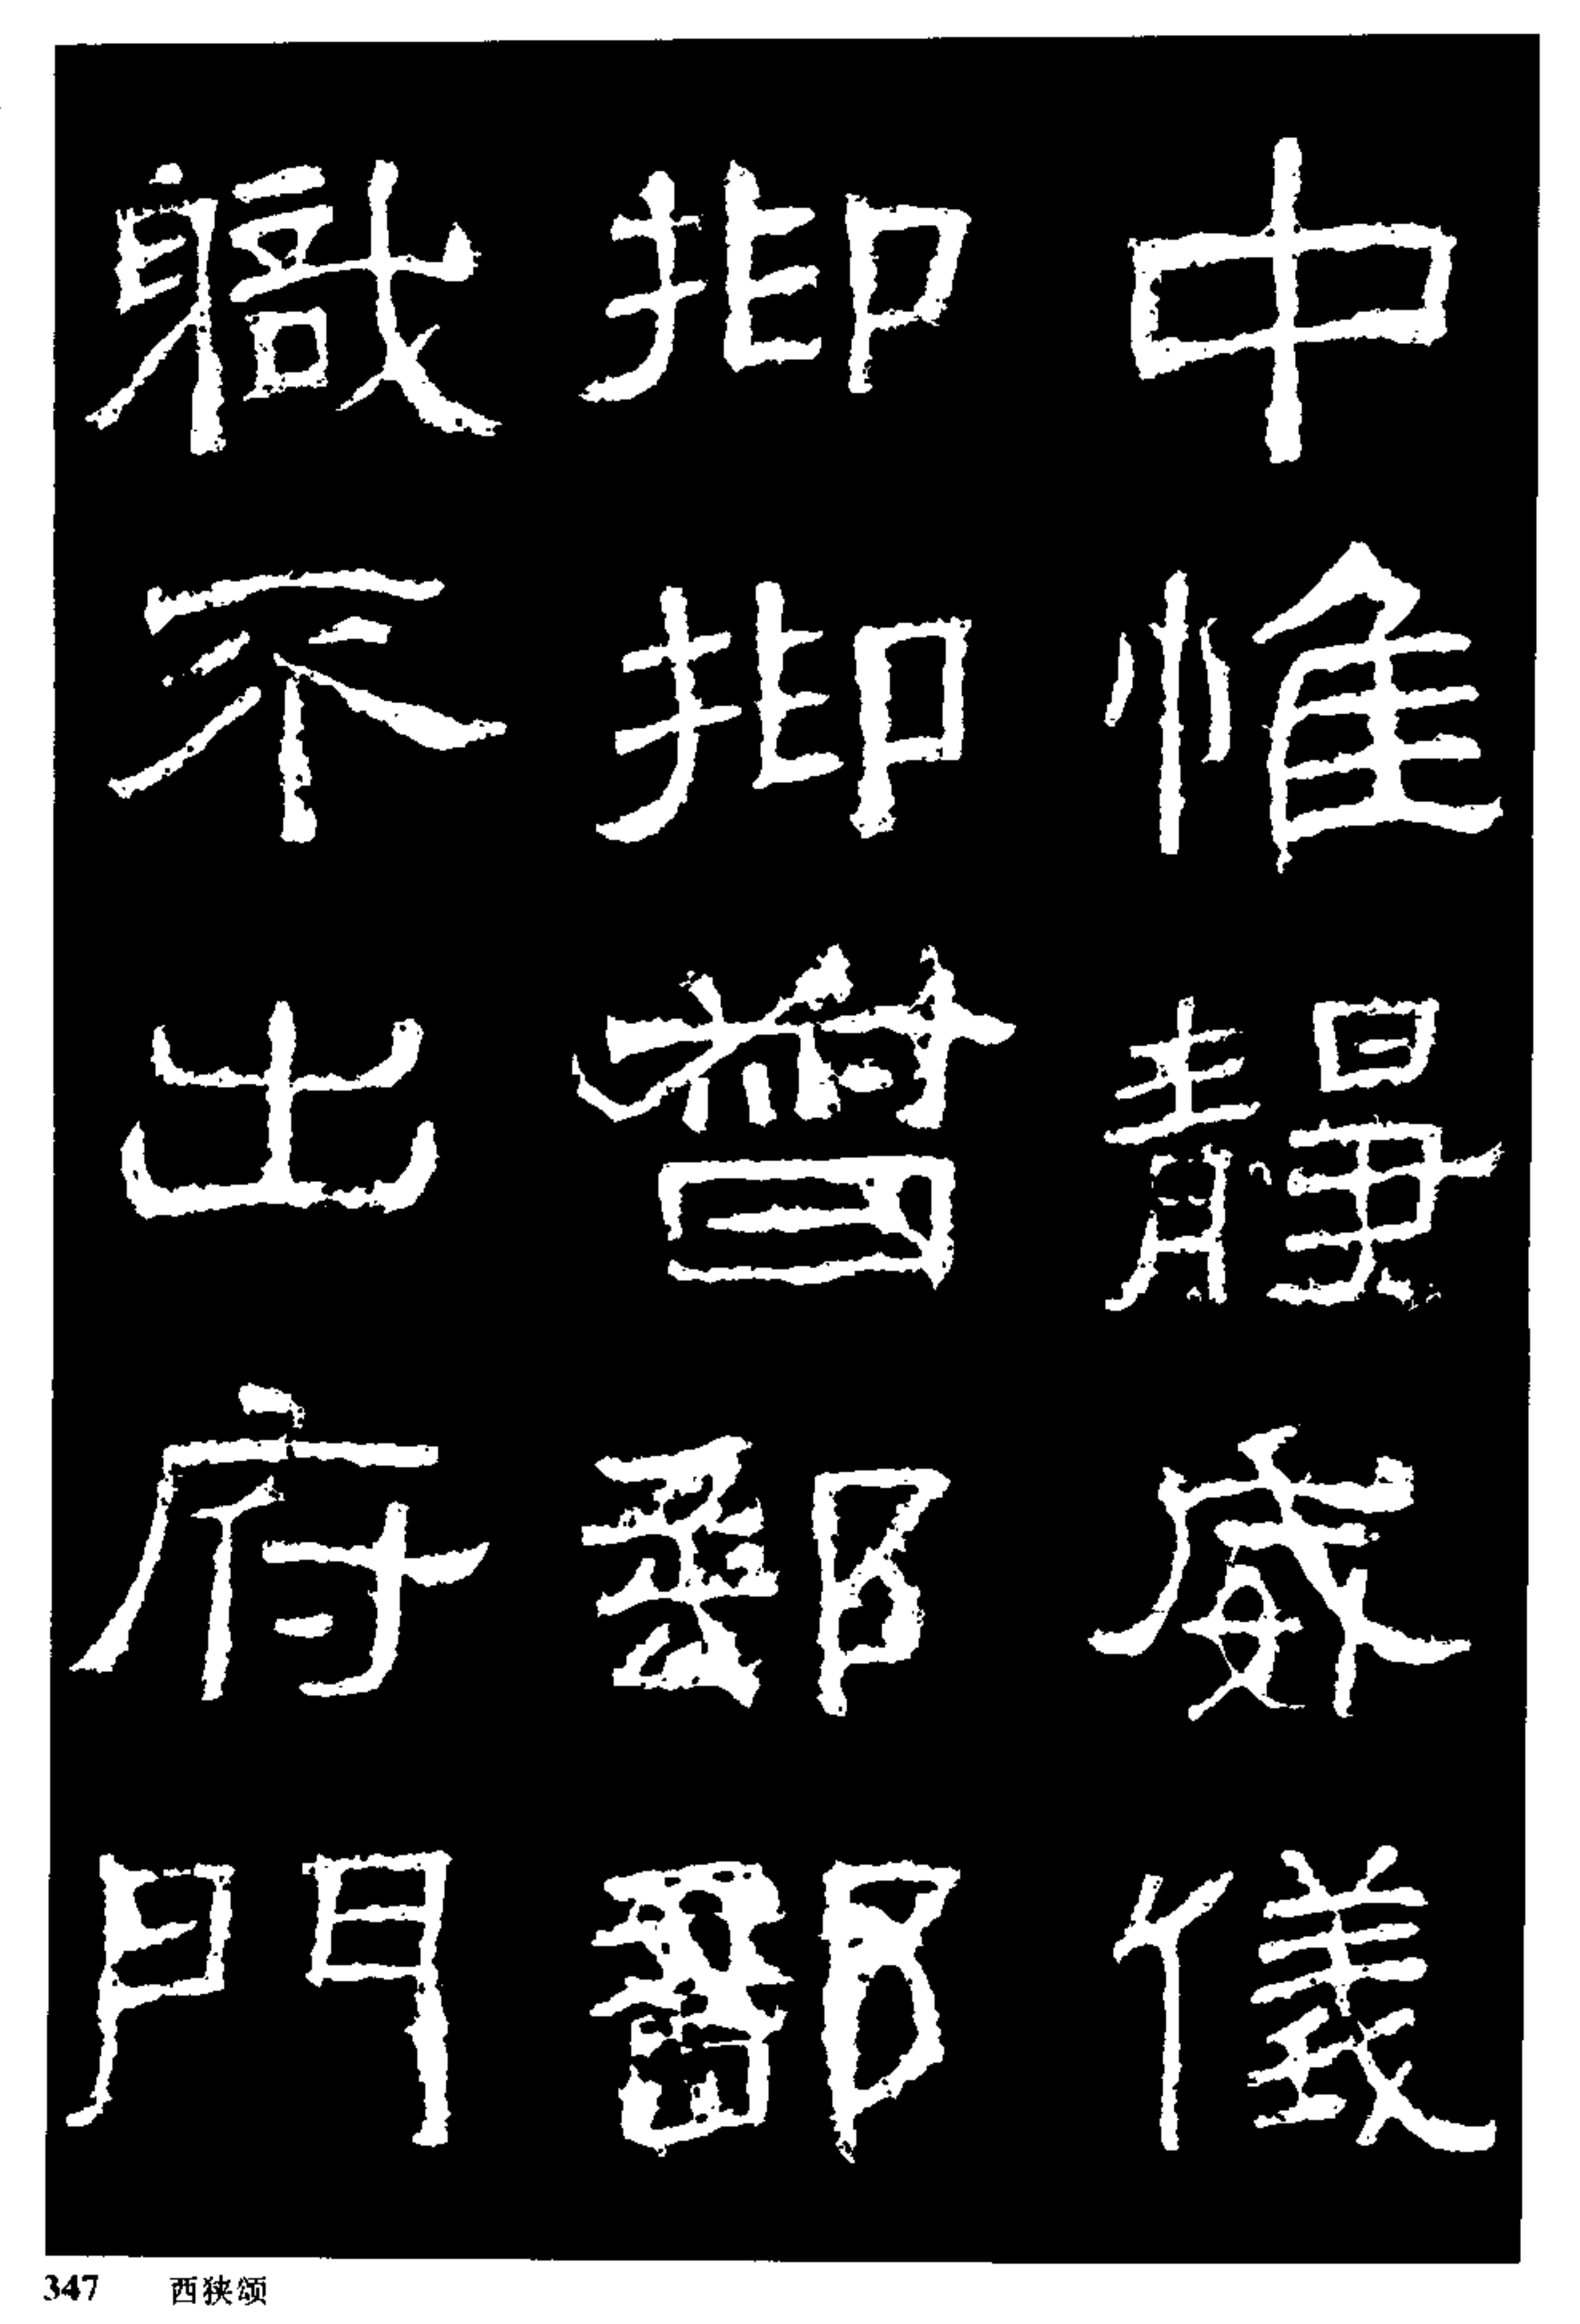 中惟靜威儀
抑抑督郵部
職不出府門
347 西狭颂